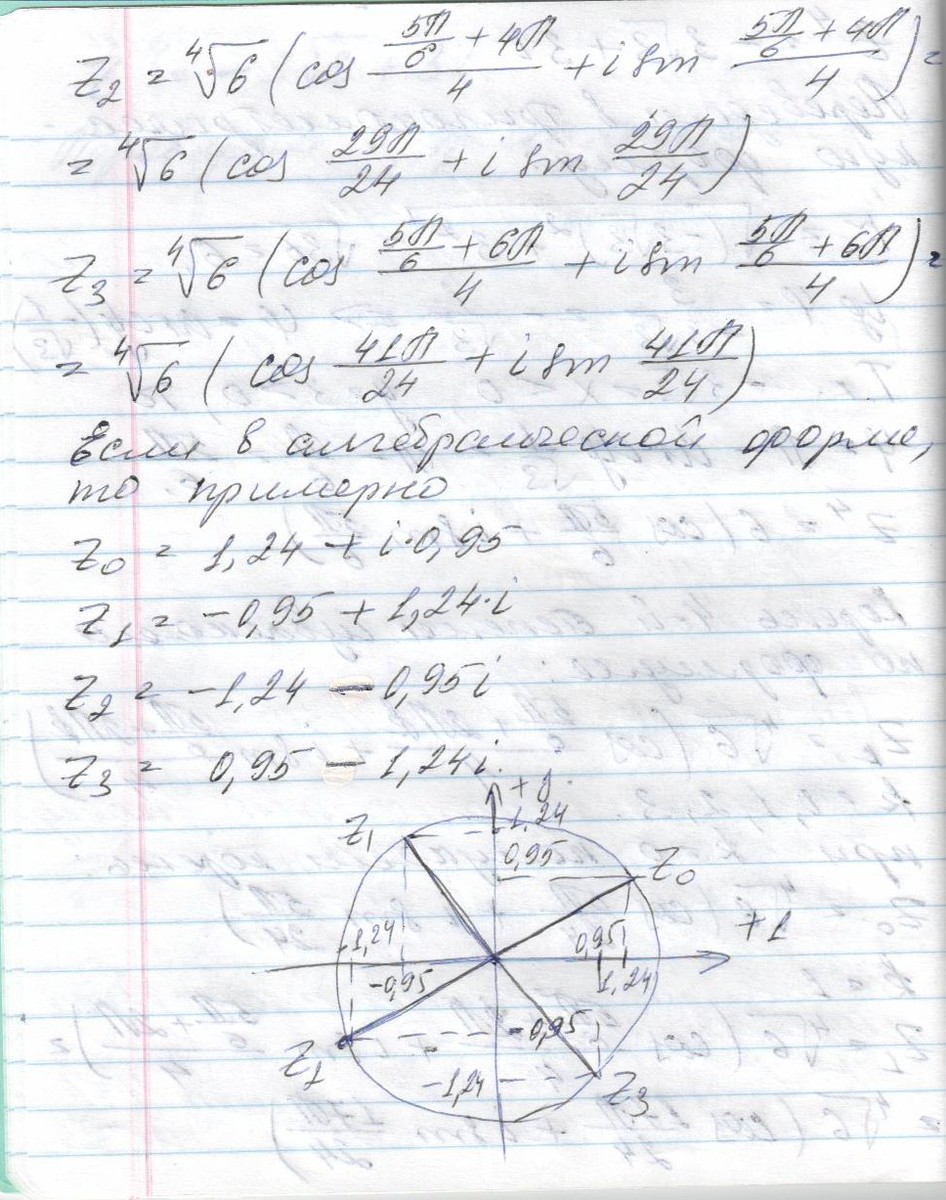 Z₂ = ⁴√6 (cos (5π/6 + 4π)/4 + i sin (5π/6 + 4π)/4) =
= ⁴√6 (cos 29π/24 + i sin 29π/24)
Z₃ = ⁴√6 (cos (5π/6 + 6π)/4 + i sin (5π/6 + 6π)/4) =
= ⁴√6 (cos 41π/24 + i sin 41π/24)
Если в алгебраической форме,
то примерно
Z₀ = 1,24 + i·0,95
Z₁ = -0,95 + 1,24·i
Z₂ = -1,24 - 0,95i
Z₃ = 0,95 - 1,24i.
Z₁
1,24
0,95
Z₀
+1
-1,24
-0,95
0,95
1,24
-0,95
Z₁
-1,24
Z₃